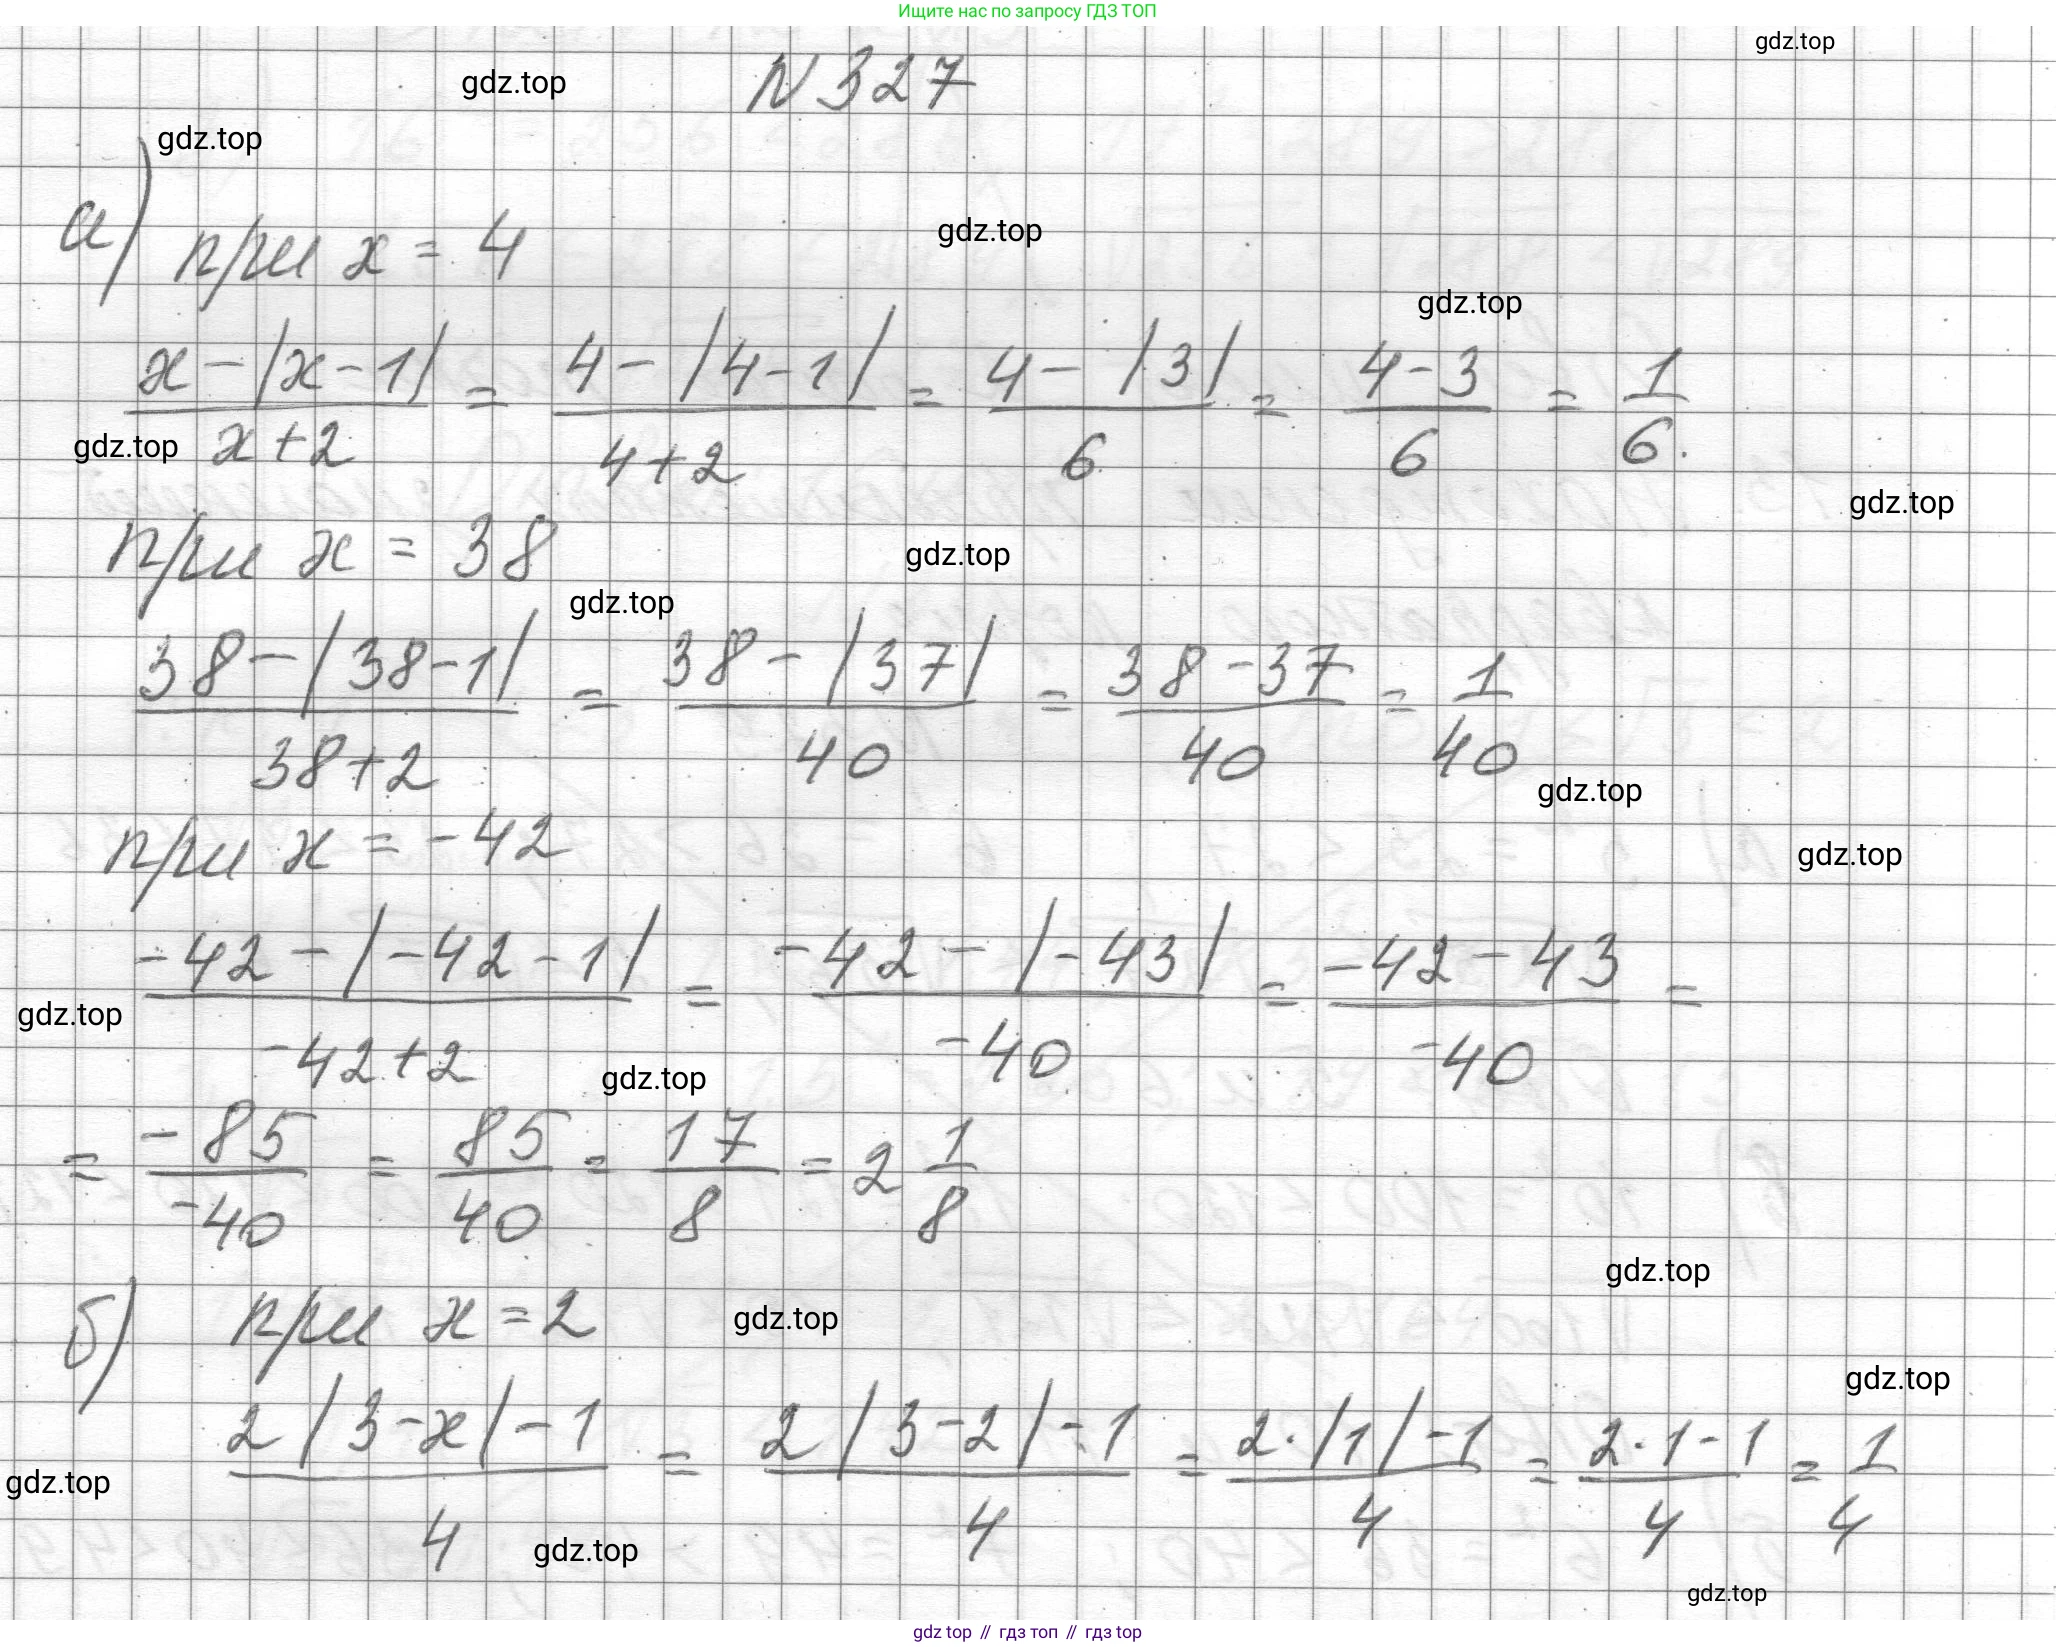 Ищите нас по запросу ГДЗ ТОП
gdz.top
gdz.top
N 327
gdz.top
а) при x = 4
gdz.top
gdz.top
(x - |x - 1|)/(x + 2) = (4 - |4 - 1|)/(4 + 2) = (4 - |3|)/6 = (4 - 3)/6 = 1/6.
gdz.top
gdz.top
при x = 38
gdz.top
gdz.top
(38 - |38 - 1|)/(38 + 2) = (38 - |37|)/40 = (38 - 37)/40 = 1/40
gdz.top
при x = -42
gdz.top
(-42 - |-42 - 1|)/(-42 + 2) = (-42 - |-43|)/(-40) = (-42 - 43)/(-40) =
gdz.top
gdz.top
= (-85)/(-40) = 85/40 = 17/8 = 2 1/8
gdz.top
б) при x = 2
gdz.top
gdz.top
(2|3 - x| - 1)/4 = (2|3 - 2| - 1)/4 = (2·|1| - 1)/4 = (2·1 - 1)/4 = 1/4
gdz.top
gdz.top
gdz.top
gdz top // гдз топ // гдз top